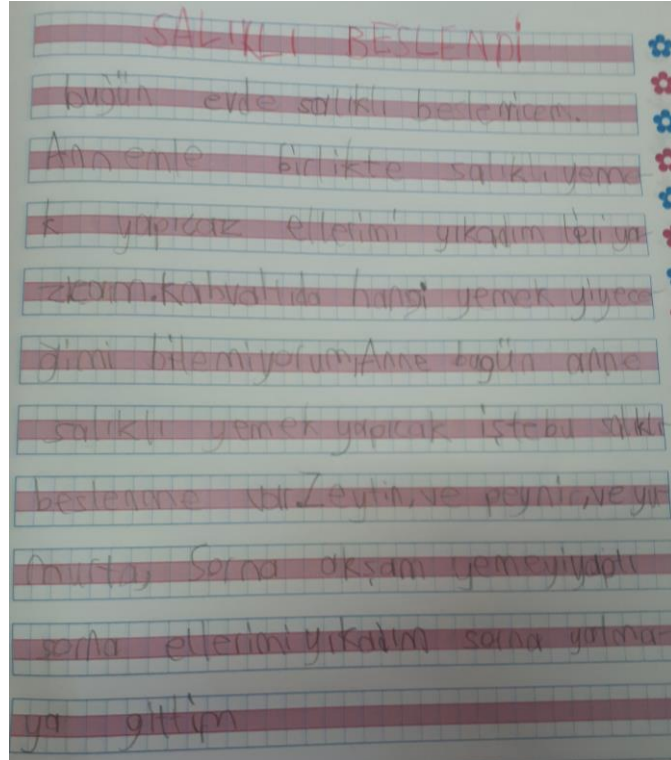 SALIKLI BESLENDİ
bugün evde salıklı beslenicem.
Annemle birlikte salıklı yeme
k yapıcaz ellerimi yıkadım
kahvaltıda hangi yemek yiyece
ğimi bilemiyorum, Anne bugün anne
salıklı yemek yapıcak iştebu salıklı
beslenme var. Zeytin, ve peynir, ve yu
murta, Sorna akşam yemeyiyaptı
sorna ellerimi yıkadım sorna yatma
ya gittim